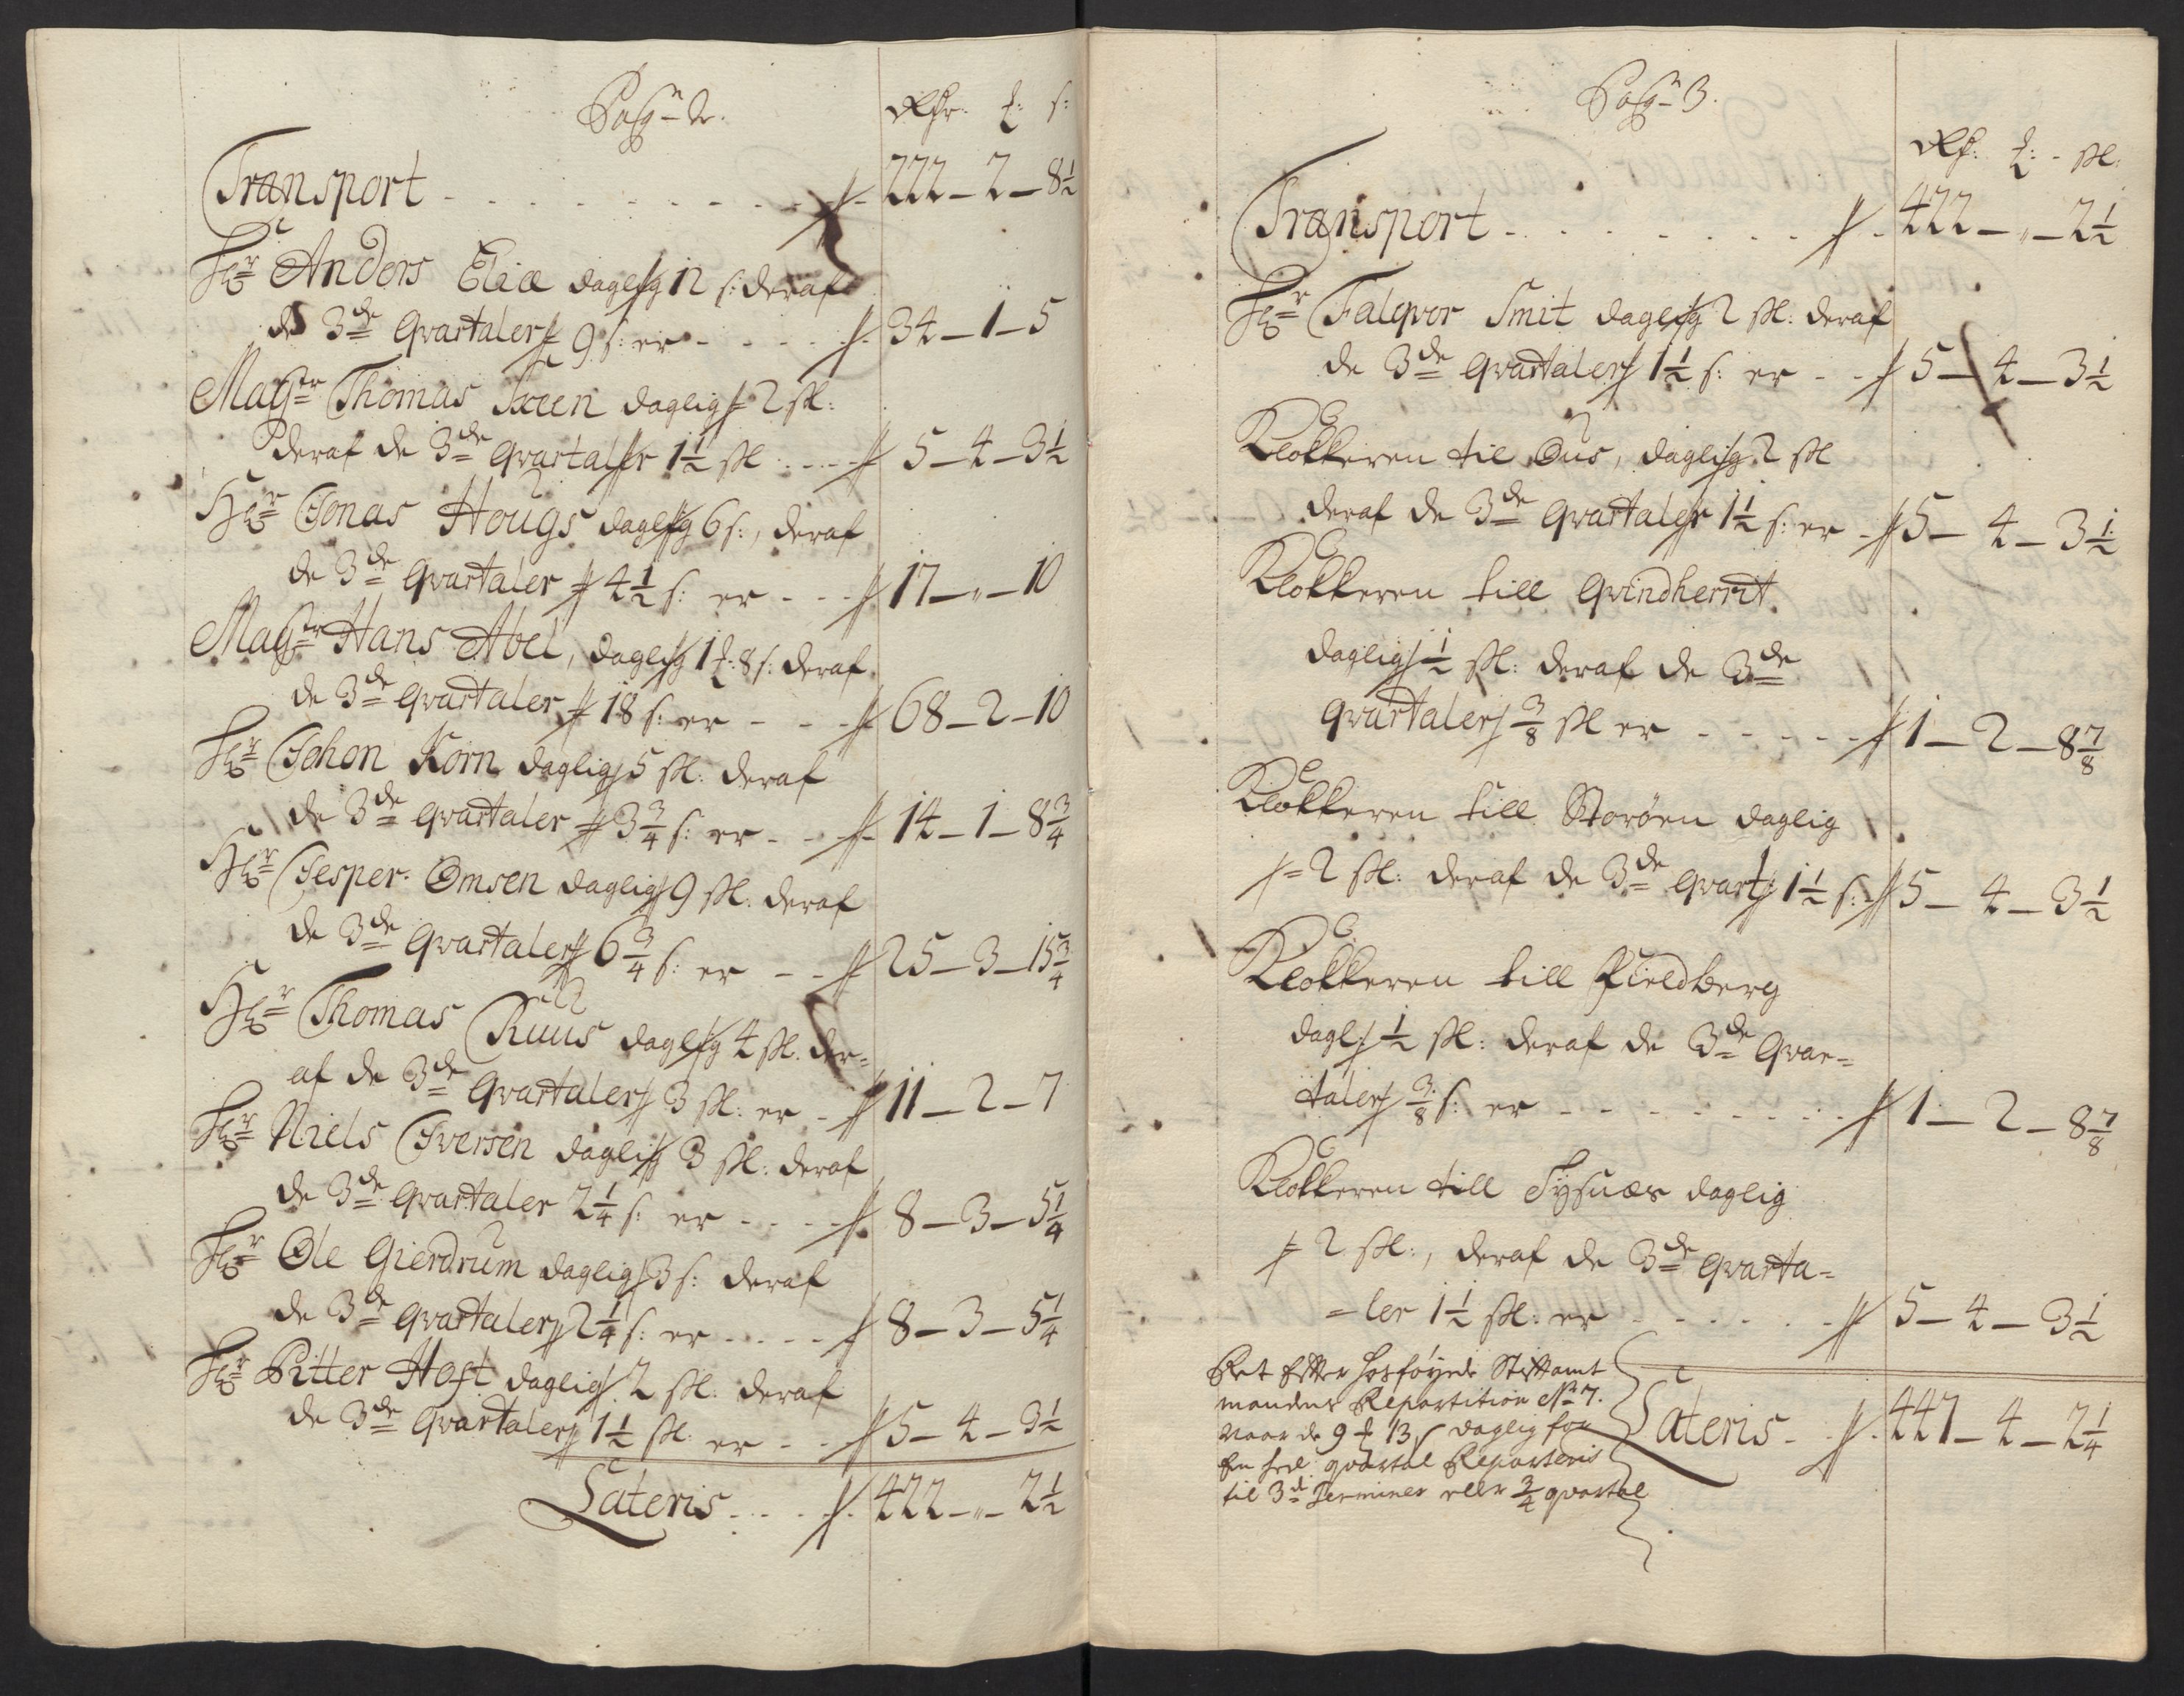 Pag: 2.
Rdr. ₰: s:
Transport - - - - - - - - 222 – 2 – 8½
Hr Anders Eliæ daglig 12 s: deraf
de 3de Qvartaler 9 s: er - - - - 34 – 1 – 5
Magr Thomas daglig 2 sk:
deraf de 3de Qvartaler 1½ sk: - - - 5 – 4 – 3½
Hr Jonas Hougs daglig 6 s:, deraf
de 3de Qvartaler 4½ s: er - - - 17 – „ – 10
Magr Hans Abel, daglig 1 ₰: 8 s: deraf
de 3de Qvartaler 18 s: er - - - 68 – 2 – 10
Hr Johon Korn daglig 5 sk: deraf
de 3de Qvartaler 3¾ s: er - - 14 – 1 – 8¾
Hr Jesper Omsen daglig 9 sk. deraf
de 3de Qvartaler 6¾ s: er - - 25 – 3 – 15¾
Hr Thomas Ruus daglig 4 sk. der=
af de 3de Qvartaler 3 sk: er - 11 – 2 – 7
Hr Niels Iversen daglig 3 sk: deraf
de 3de Qvartaler 2¼ s: er - - - - 8 – 3 – 5¼
Hr Ole Gierdrum daglig 3 s: deraf
de 3de Qvartaler 2¼ s: er - - - - 8 – 3 – 5¼
Hr Pitter Hoft daglig 2 sk: deraf
de 3de Qvartaler 1½ sk: er - - 5 – 4 – 3½
Lateris - - - - 422 – „ – 2½
Pag: 3.
Rd: ₰: - sk:
Transport - - - - - - - - 422 – „ – 2½
Hr Falqvor Smit daglig 2 sk: deraf
de 3de Qvartaler 1½ s: er - - 5 – 4 – 3½
Klokkeren til Ous, daglig 2 sk
deraf de 3de Qvartaler 1½ s: er - 5 – 4 – 3½
Klokkeren till Qvindherrit
daglig ½ sk: deraf de 3de
Qvartaler ⅜ sk er - - - - - 1 – 2 – 8⅞
Klokkeren till Storøen daglig
= 2 sk: deraf de 3de Qvart: 1½ s: 5 – 4 – 3½
Klokkeren till Fieldberg
dagl: ½ sk: deraf de 3de Qvar=
taler ⅜ s: er - - - - - - - - 1 – 2 – 8⅞
Klokkeren till Tysnæs daglig
= 2 sk:, deraf de 3de Qvarta=
=ler 1½ sk: er - - - - - - 5 – 4 – 3½
Ret Efter hosføyede Stiftamt
mandens Repartition No 7.
naar de 9 ₰ 13 s daglig for
En heel qvartal Reparteris
til 3de Terminer eller ¾ qvartal
Lateris - - 447 – 4 – 2¼